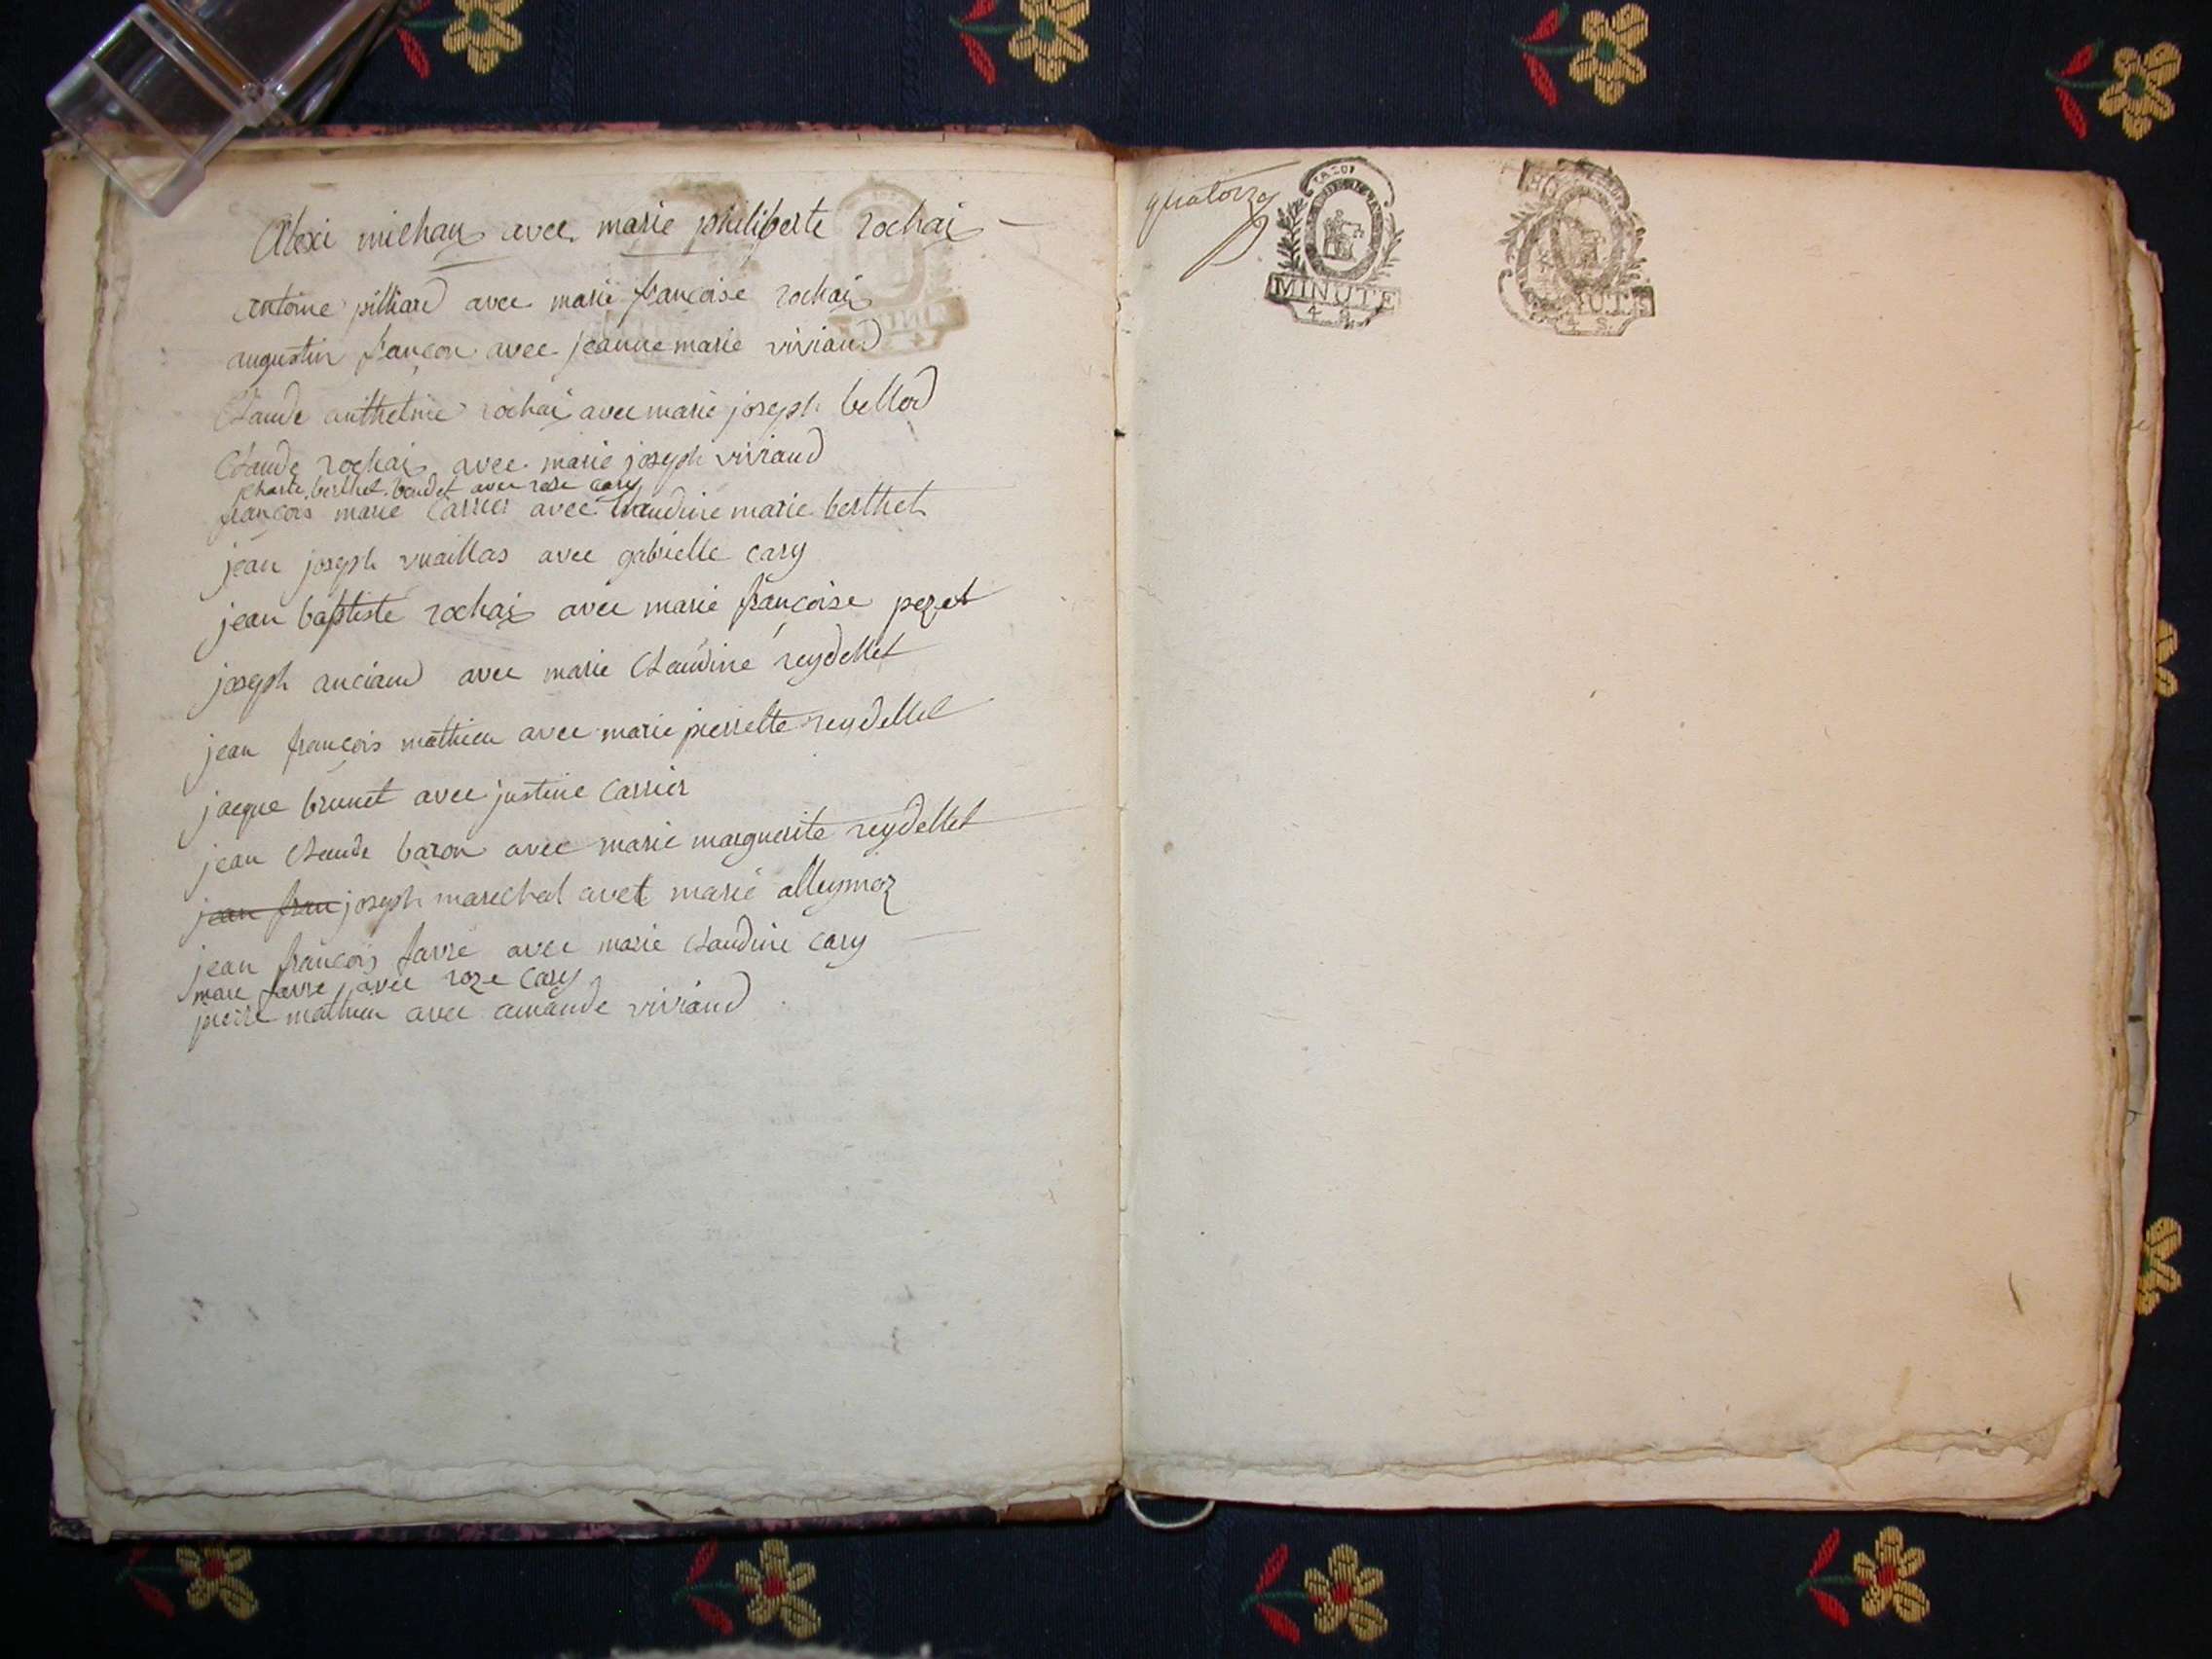 Alexi michau avec marie philiberte rochaix
antoine pilliard avec marie francoise rochaix
augustin françon avec jeanne marie viviand
Claude anthelme rochaix avec marie joseph bellod
Claude rochaix avec marie joseph viviand
berthet boudet avec rose cary
françois marie Carrier avec Claudine marie berthet
jean joseph vuaillas avec gabrielle cary
jean baptiste rochaix avec marie françoise pezet
joseph anciand avec marie Claudine reydellet
jean françois mathieu avec marie pierrette reydellet
jacque brunet avec justine Carrier
jean Claude baron avec marie marguerite reydellet
jean fran joseph marechal avet marie alleymoz
jean françois favre avec marie Claudine Cary
marc favre avec roze Cary
pierre mathieu avec amande viviand
quatorze
MINUTE
4 S.